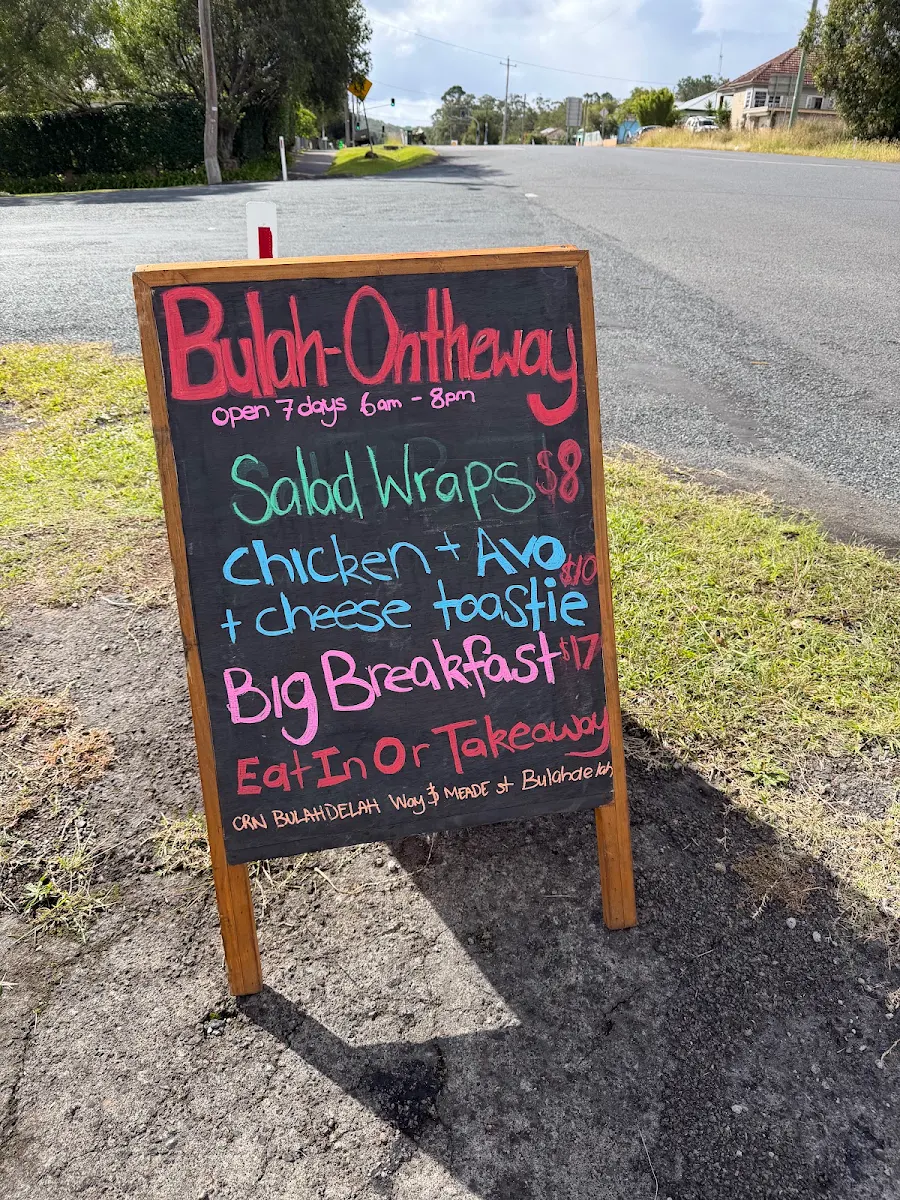 Bulah-Ontheway
open 7 days 6am - 8pm
Salad Wraps $8
Chicken + Avo $10
+ cheese toastie
Big Breakfast $17
Eat In Or Takeaway
CRN BULAHDELAH Way & MEADE st Bulahdelah